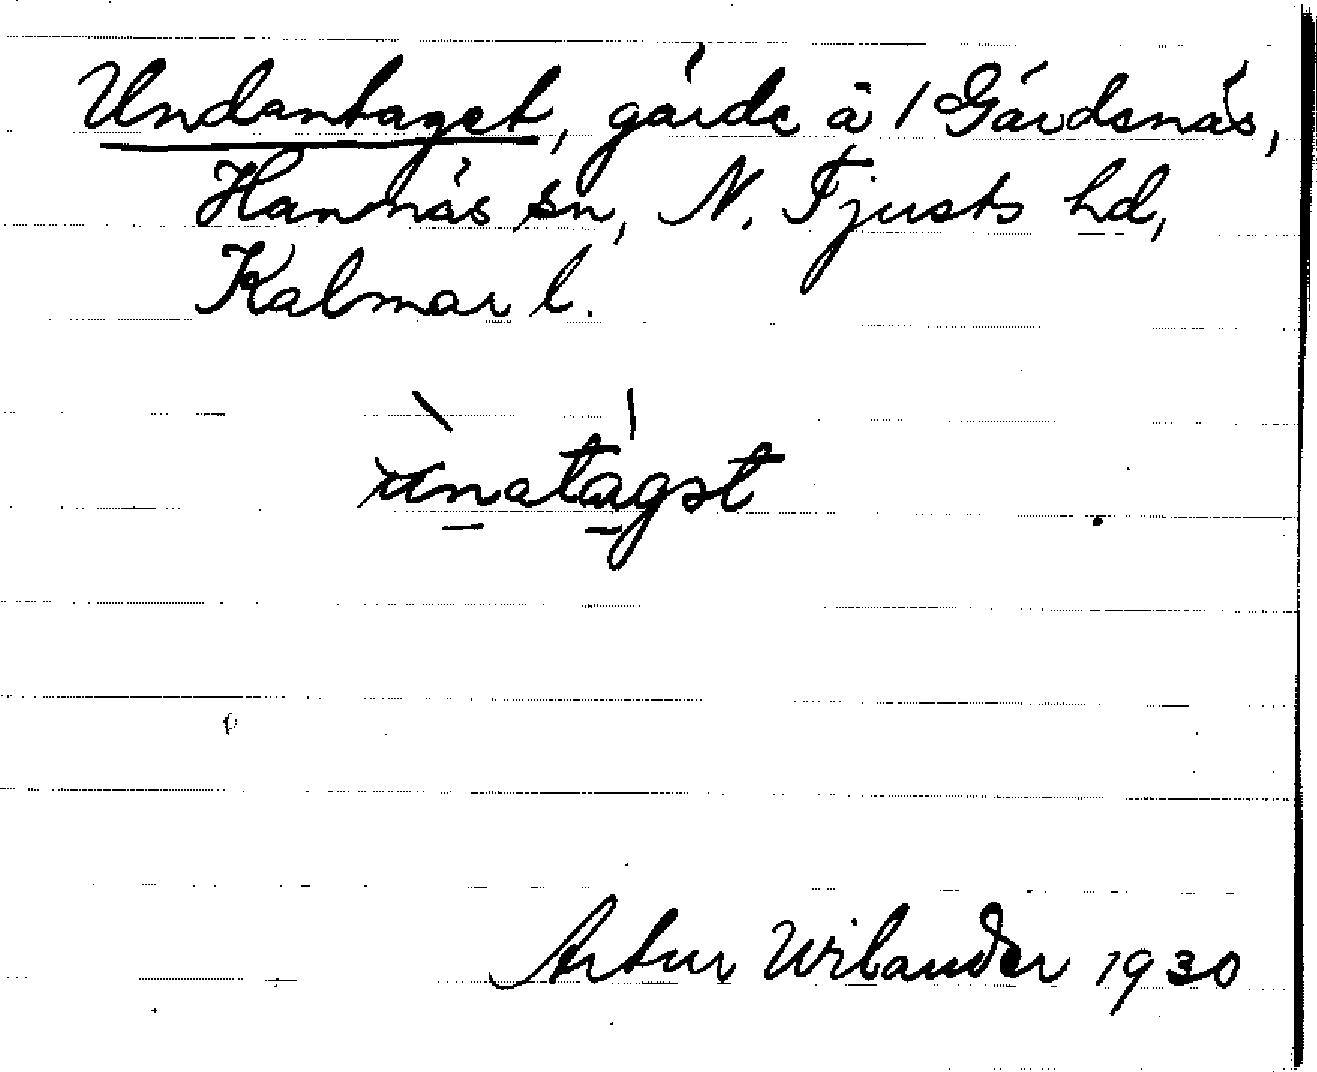 Undantaget, gärde å 1 Gärdsnäs,
Hannäs sn, N. Tjusts hd,
Kalmar l.
Artur Wilander 1930